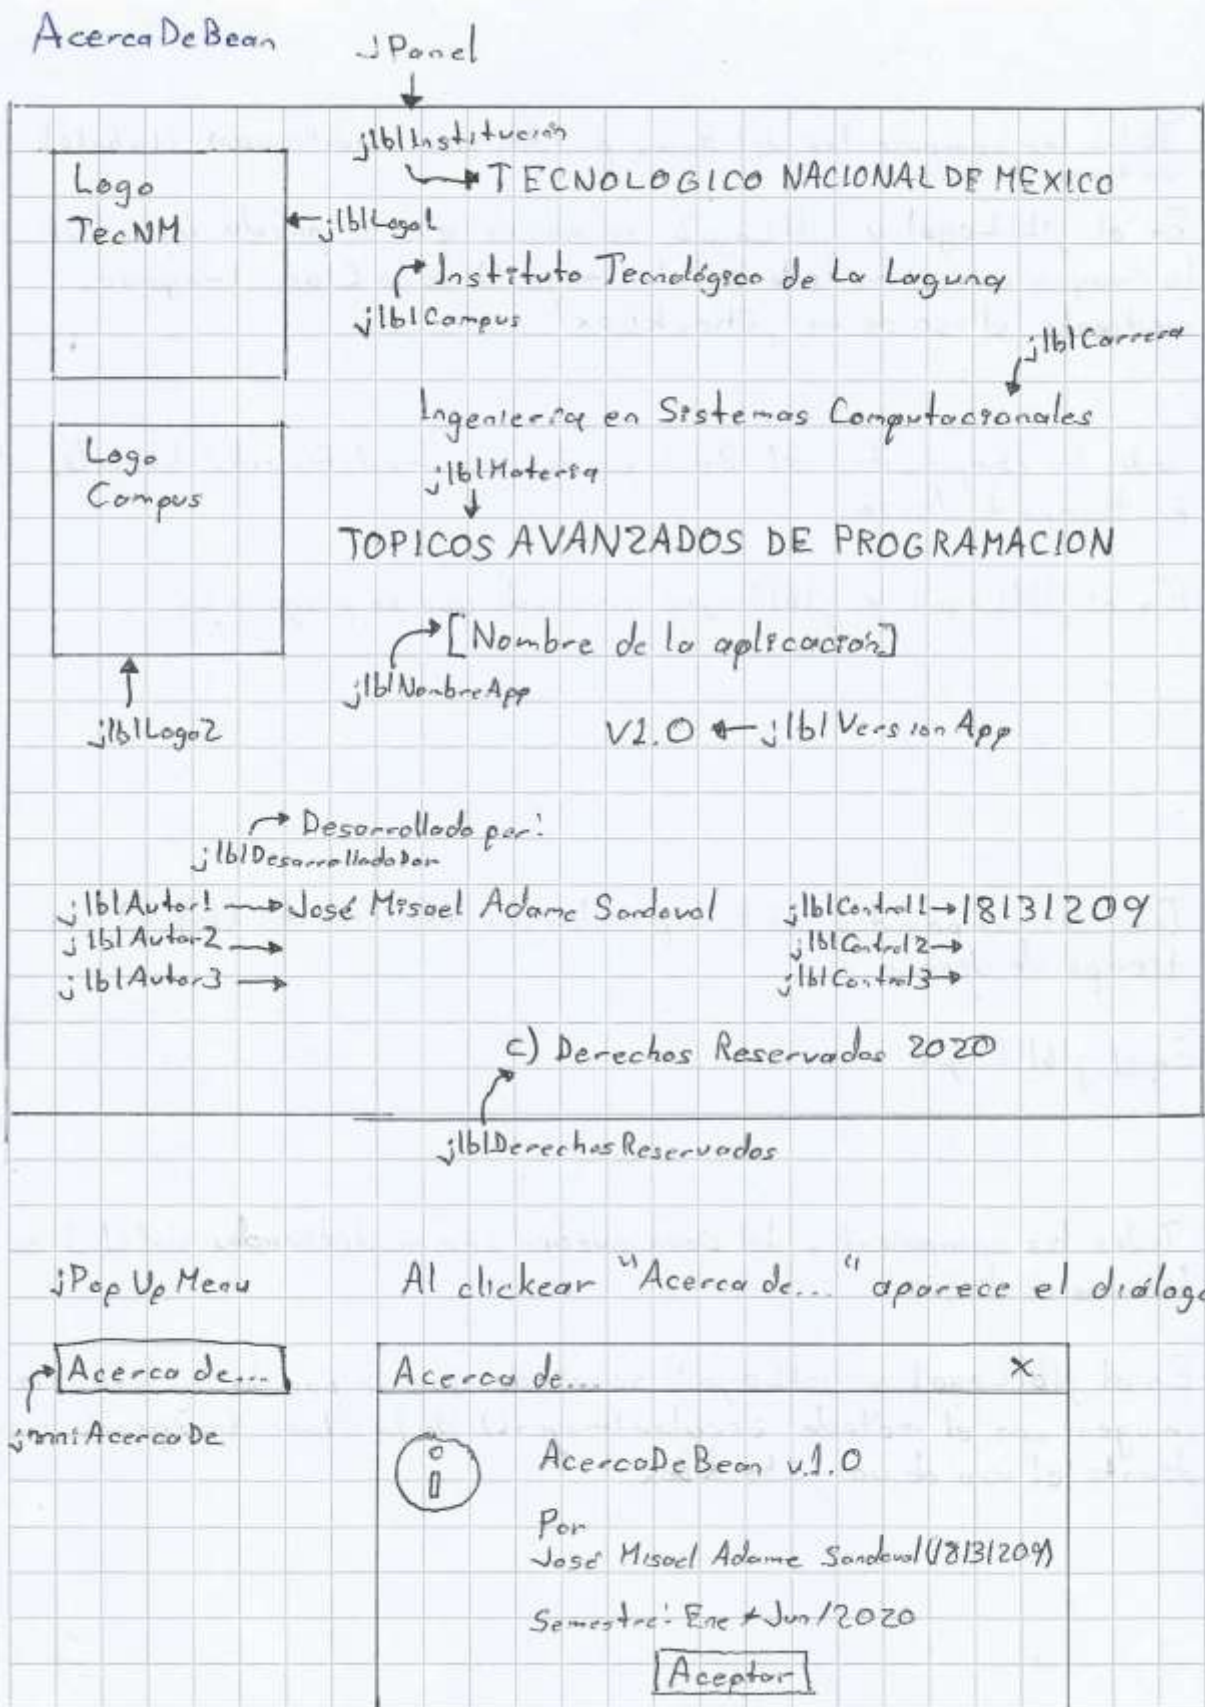 AcercaDeBean
jPanel
jlblInstitución
TECNOLOGICO NACIONAL DE MEXICO
Logo
TecNM
jlblLogo1
Instituto Tecnológico de La Laguna
jlblCampus
jlblCarrera
Ingeniería en Sistemas Computacionales
Logo
Campus
jlblMateria
TOPICOS AVANZADOS DE PROGRAMACION
[Nombre de la aplicación]
jlblNombreApp
jlblLogo2
V1.0
jlblVersionApp
Desarrollado por:
jlblDesarrolladoPor
jlblAutor1 José Misael Adame Sandoval jlblControl1 18131209
jlblAutor2 jlblControl2
jlblAutor3 jlblControl3
c) Derechos Reservados 2020
jlblDerechosReservados
jPopUpMenu
Al clickear "Acerca de..." aparece el diálogo
Acerca de...
jmniAcercaDe
Acerca de... X
AcercaDeBean v.1.0
Por
José Misael Adame Sandoval (18131209)
Semestre: Ene Jun/2020
Aceptar